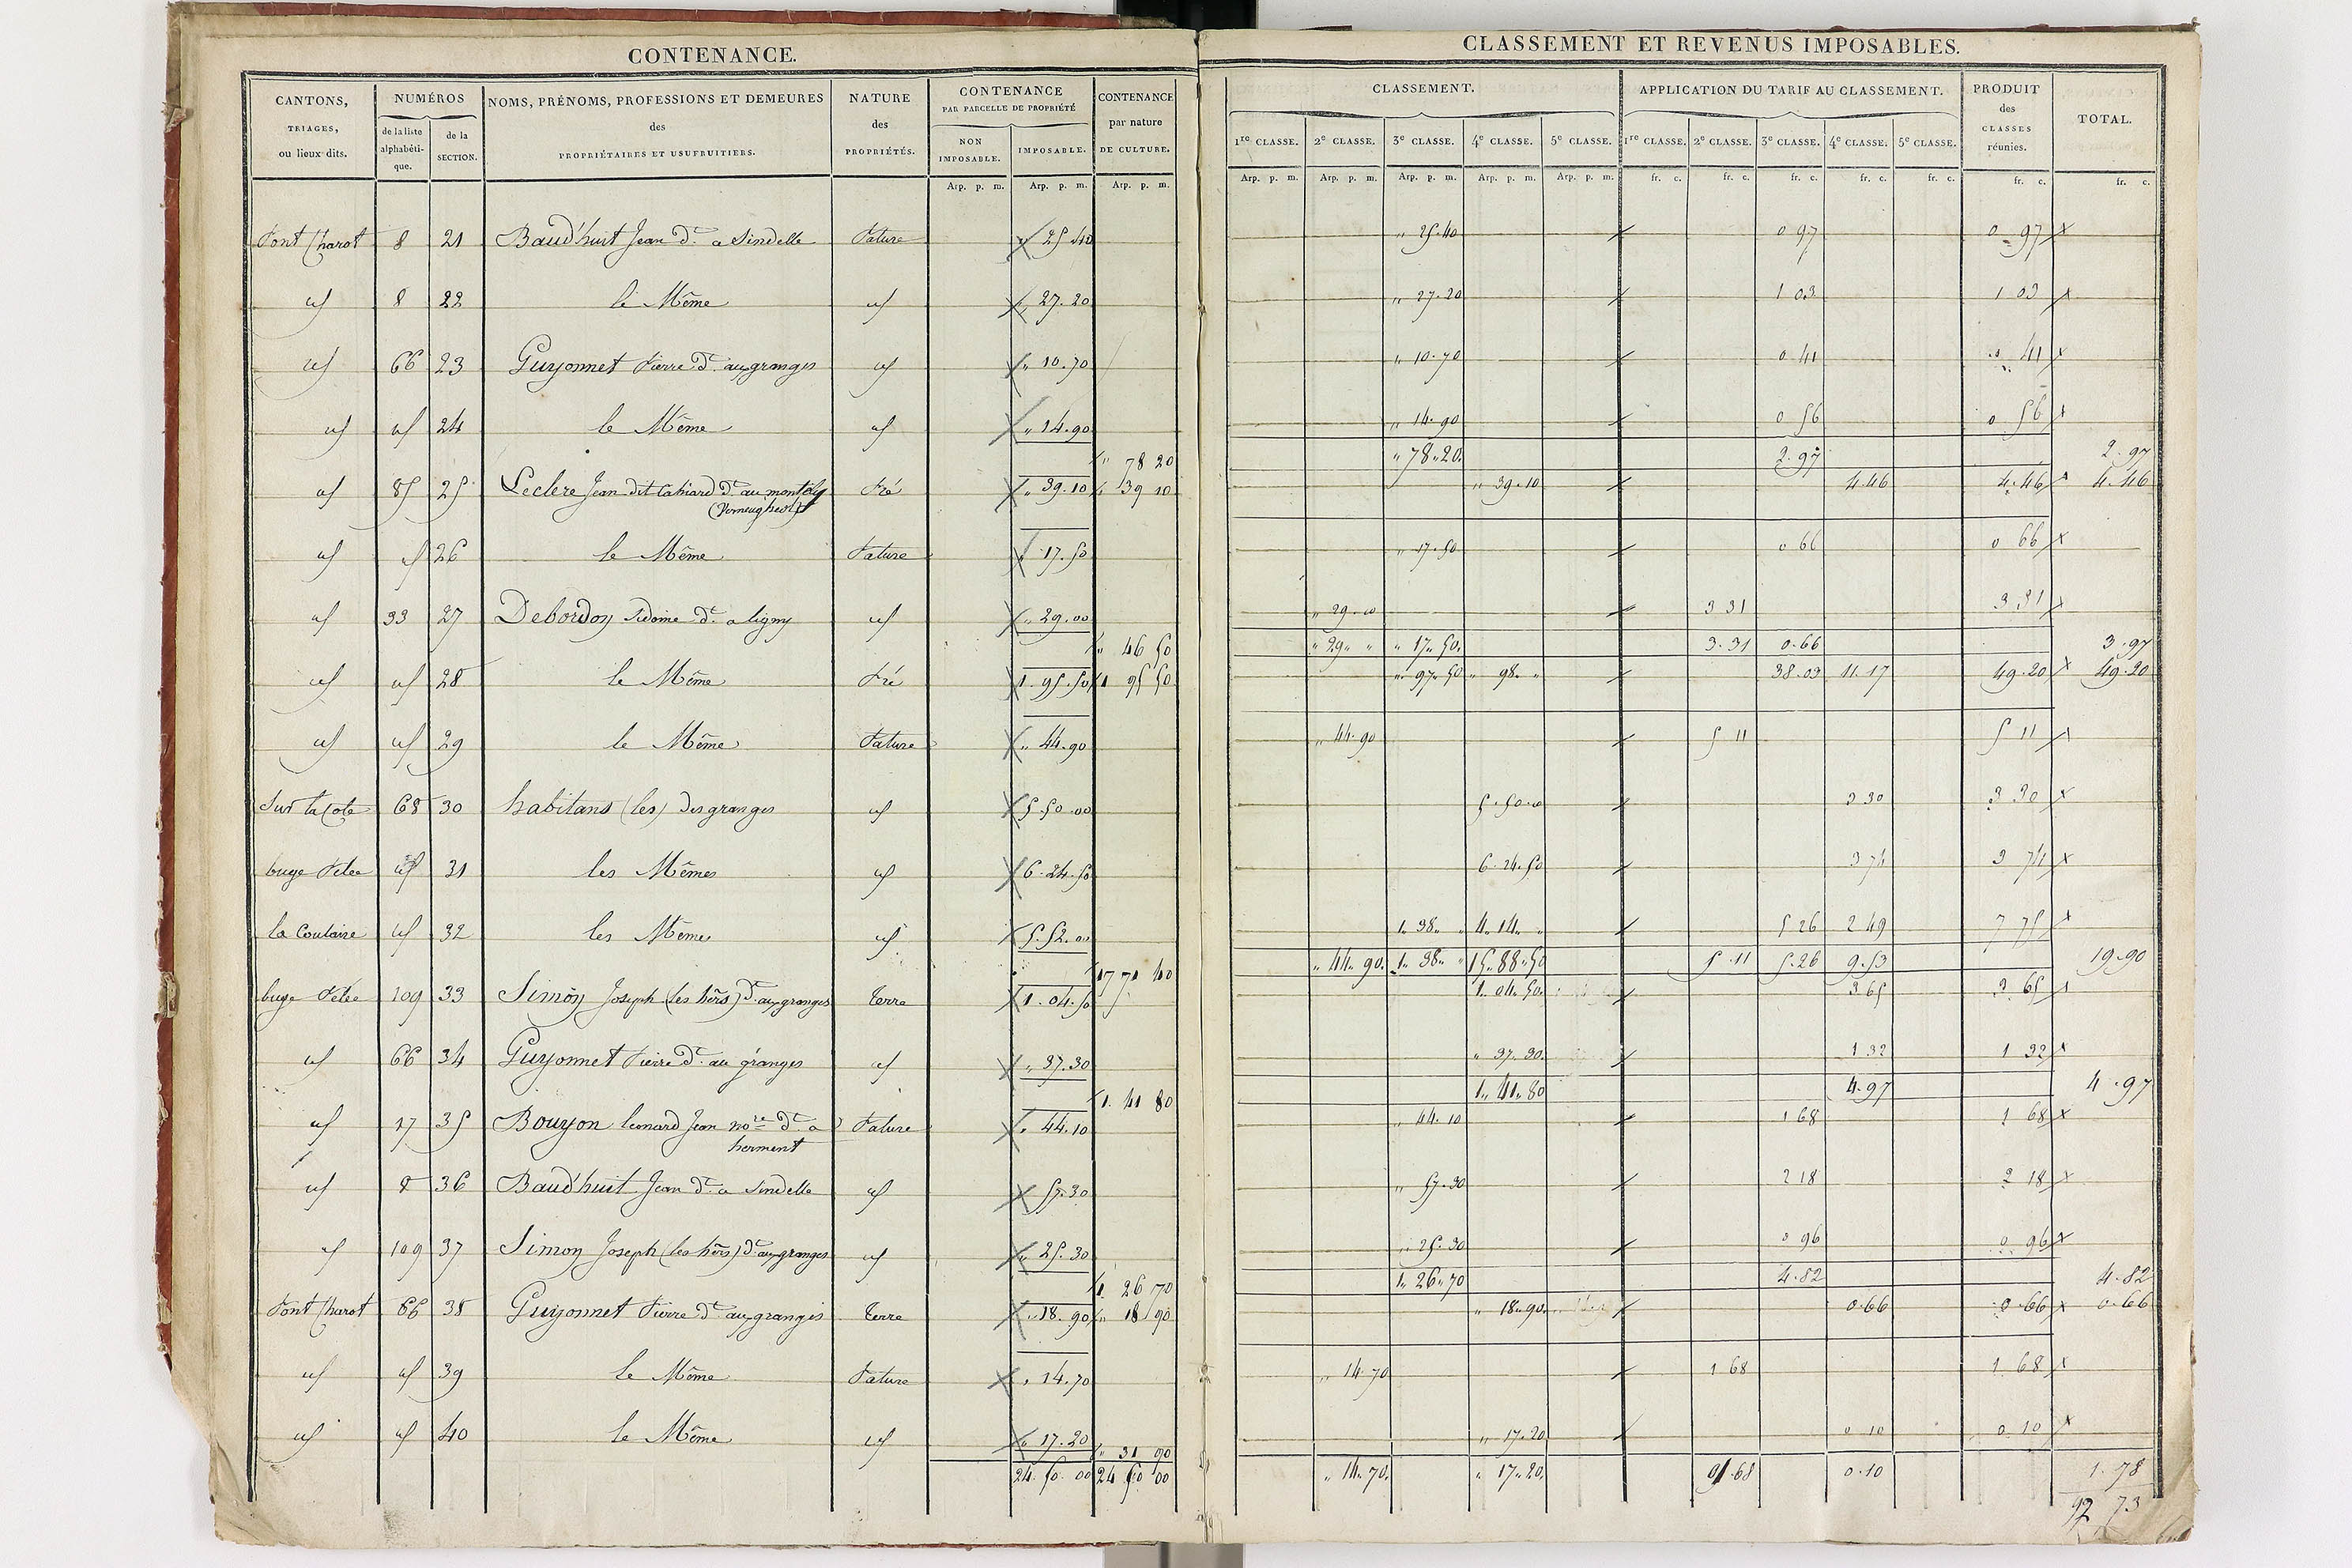 CONTENANCE.
CANTONS, TRIAGES, ou lieux-dits. | NUMÉROS de la liste alphabétique. | de la SECTION. | NOMS, PRÉNOMS, PROFESSIONS ET DEMEURES des PROPRIÉTAIRES ET USUFRUITIERS. | NATURE des PROPRIÉTÉS. | CONTENANCE PAR PARCELLE DE PROPRIÉTÉ NON IMPOSABLE. | IMPOSABLE. | CONTENANCE par nature DE CULTURE.
Arp. p. m. | Arp. p. m. | Arp. p. m.
Pont Charot 8 21 Baud'huit Jean dt a Sindelle Pature " 25.40
id 8 22 le Même id " 27.20
id 66 23 Guyonnet Pierre dt aux granges id " 10.70
id id 24 le Même id " 14.90
" 78 20
id 85 25 Leclere Jean dit Cahiard dt au montely Pré " 39.10 " 39 10
(Verneugheol)
id id 26 le Même Pature " 17.50
id 33 27 Debordon Sidoine dt a ligny id " 29.00
" 46 50
id id 28 le Même Pré 1.95.50 1 95 50
id id 29 le Même Pature " 44.90
Sur la Cote 68 30 habitans (les) des granges id 5.50.00
buge Pelee id 31 les Mêmes id 6.24.50
la Coulaire id 32 les Même id 5.52.00
17 71 40
buge Pelée 109 33 Simon Joseph (les hers) dt aux granges Terre 1.04.50
id 66 34 Guyonnet Pierre dt au granges id " 37.30
1. 41 80
id 17 35 Bouyon leonard Jean nore dt a Pature " 44.10
herment
id 8 36 Baud'huit Jean dt a Sindelle id 57.30
id 109 37 Simon Joseph (les hers) dt aux granges id " 25.30
1. 26 70
Pont Charot 66 38 Guyonnet Pierre dt aux granges Terre " 18.90 " 18 90
id id 39 le Même Pature " 14.70
id id 40 le Même id " 17.20
" 31 90
24.50.00 24 50 00
CLASSEMENT ET REVENUS IMPOSABLES.
CLASSEMENT. | APPLICATION DU TARIF AU CLASSEMENT. | PRODUIT des CLASSES réunies. | TOTAL.
1re CLASSE. | 2e CLASSE. | 3e CLASSE. | 4e CLASSE. | 5e CLASSE. | 1re CLASSE. | 2e CLASSE. | 3e CLASSE. | 4e CLASSE. | 5e CLASSE.
Arp. p. m. | Arp. p. m. | Arp. p. m. | Arp. p. m. | Arp. p. m. | fr. c. | fr. c. | fr. c. | fr. c. | fr. c. | fr. c. | fr. c.
" 25.40 0 97 0 97
" 27.20 1 03 1 03
" 10.70 0 41 0 41
" 14.90 0 56 0 56
" 78"20 2.97 2.97
" 39.10 4.46 4.46 4.46
" 17.50 0 66 0 66
" 29.00 3 31 3 31
" 29 " " 17"50 3.31 0.66 3.97
" 97"50 " 98 " 38.03 11.17 49.20 49.20
" 44.90 5 11 5 11
5.50.00 3 30 3 30
6.24.50 3 74 3 74
1"38 " 4"14 " 5 26 2 49 7 75
" 44"90 1"38 " 15"88"50 5.11 5.26 9.53 19.90
1"04"50 3 65 3 65
" 37"30 1 32 1 32
1"41"80 4.97 4.97
" 44.10 1 68 1 68
" 57.30 2 18 2 18
" 25.30 0 96 0 96
1"26"70 4.82 4.82
" 18"90 0.66 0.66 0.66
" 14.70 1 68 1 68
" 17.20 0 10 0 10
" 14"70 " 17"20 1.68 0.10 1.78
92 73